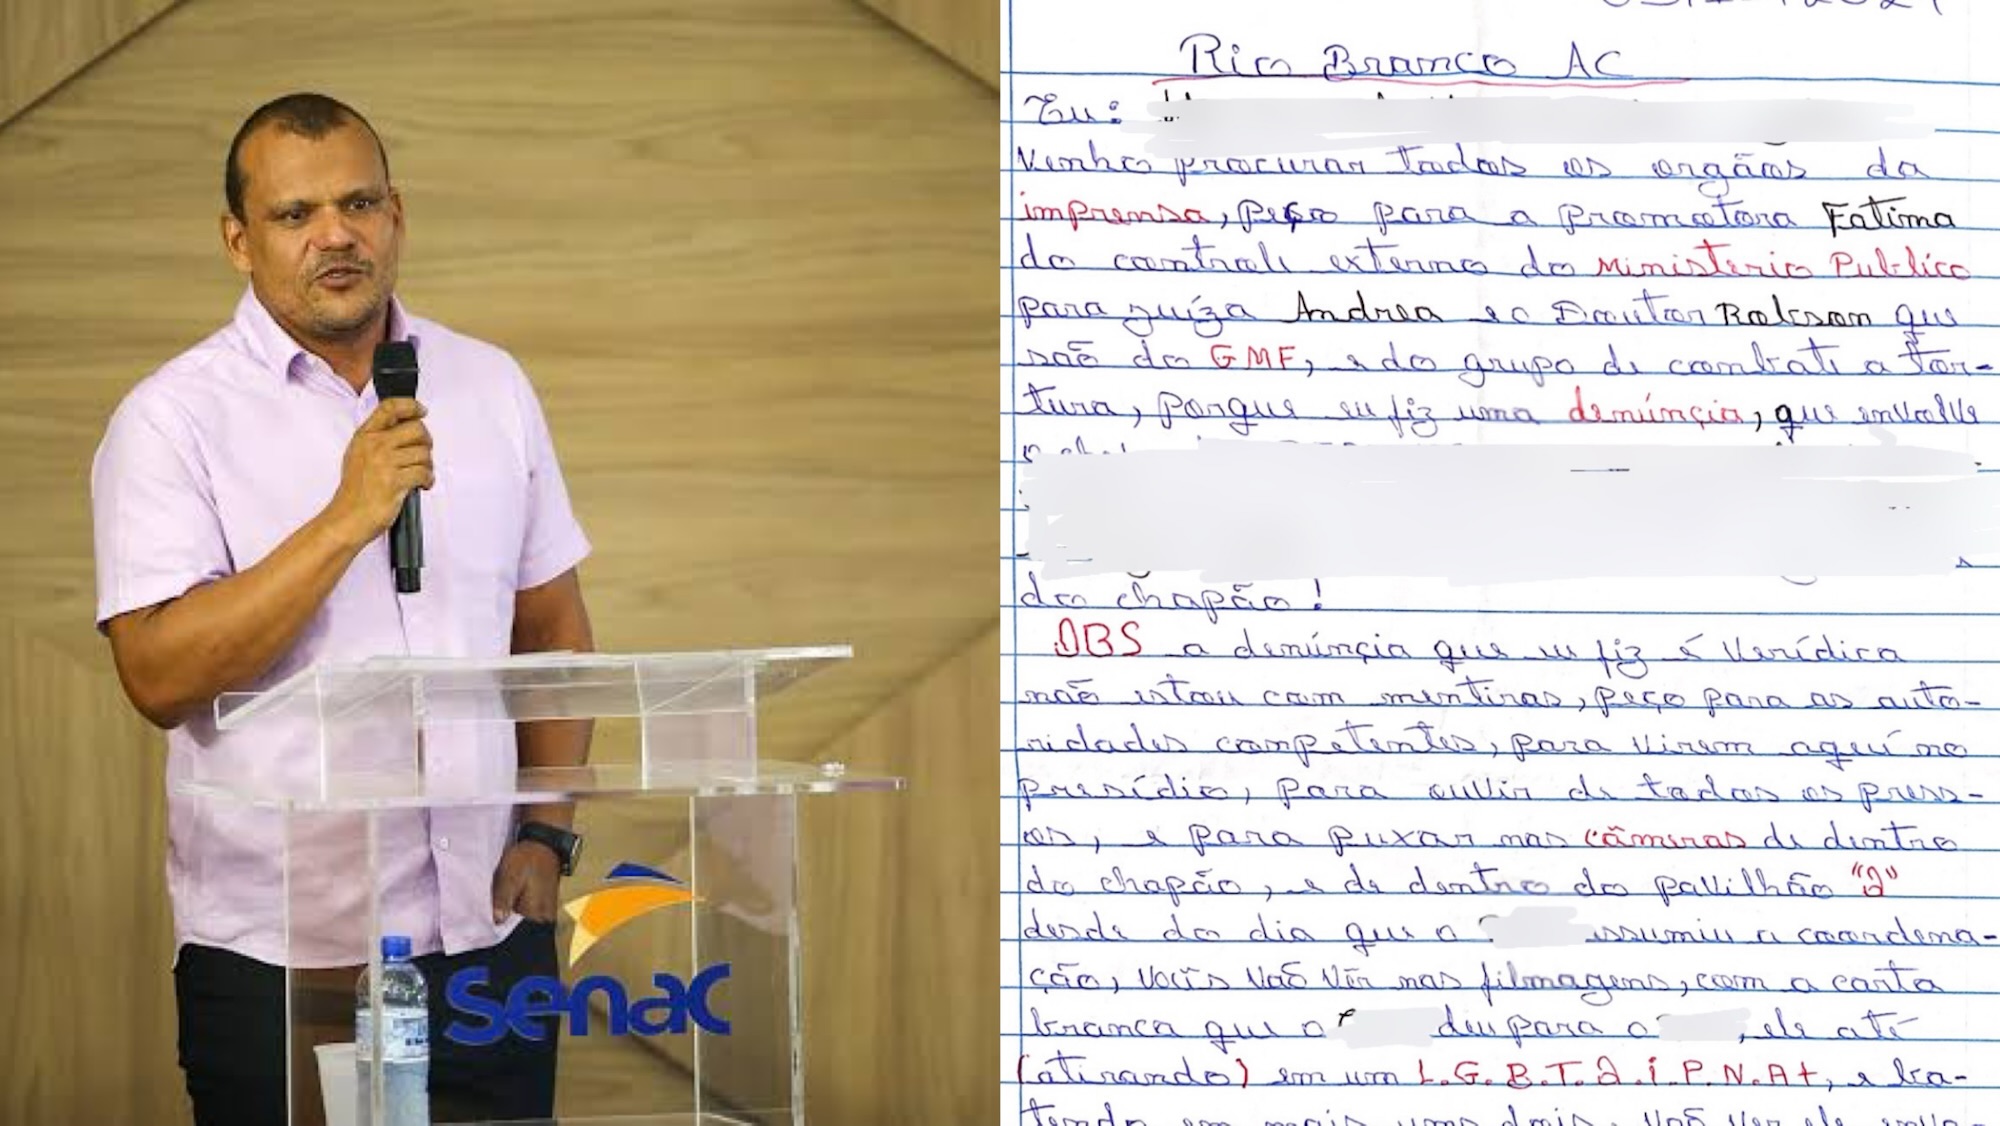 senac
Rio Branco AC
Eu:
Venho procurar todos os orgãos da
imprensa, peço para a promotora Fatima
do controle externo do Ministerio Publico
para juíza Andrea e o Doutor Robson que
são do GMF, e do grupo de combate a tor-
tura, porque eu fiz uma denúnçia, que envolve
do chapão!
OBS a denúnçia que eu fiz é Verídica
não estou com mentiras, peço para as auto-
ridades competentes, para virem aqui no
presídio, para ouvir de todos os press-
os, e para puxar nas câmeras de dentro
do chapão, e de dentro do pavilhão "2"
desde do dia que o assumiu a coordena-
ção, vocês vão vir nas filmagens, com a carta
branca que o deu para o , ele até
(atirando) em um L.G.B.T.Q.i.P.N.A+, e ba-
tendo em mais uns dois, vão ver ele